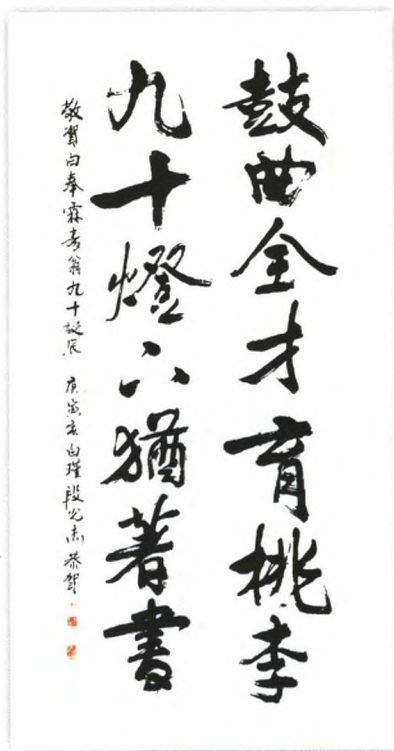 鼓曲全才育桃李
九十燈下猶著書
敬賀白奉霖老翁九十誕辰 庚寅春白瑾段光南恭賀